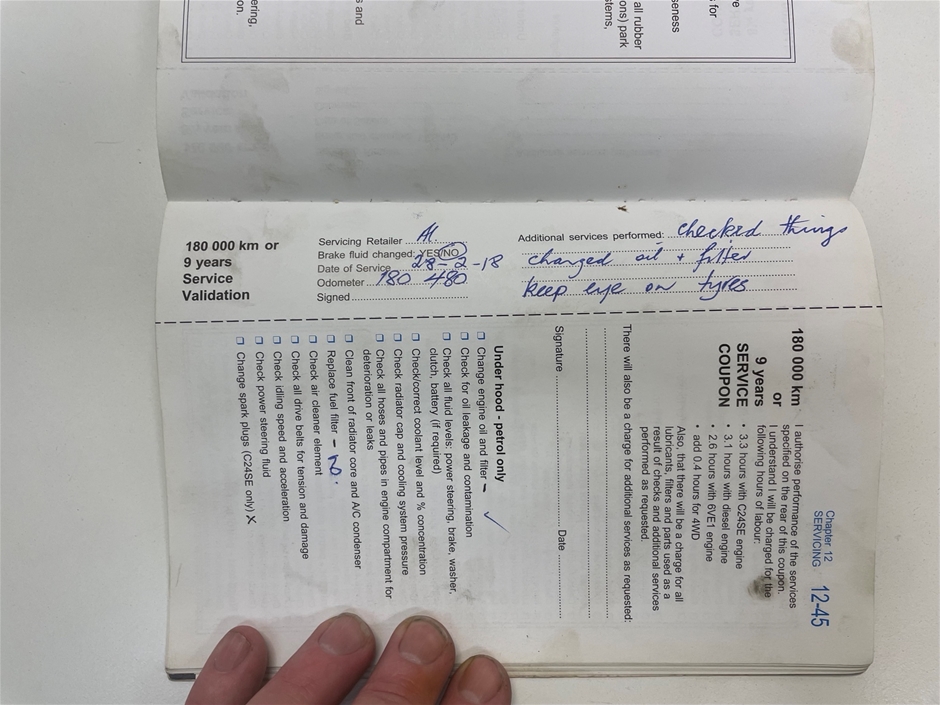 ering,
on.
s and
all rubber
ons) park
stems,
seness
for
re
180 000 km or
9 years
Service
Validation
Servicing Retailer
Brake fluid changed: YES/NO
Date of Service 28-2-18
Odometer 180 480
Signed
Additional services performed: checked things
changed oil + filter
keep eye on tyres
Chapter 12
SERVICING 12-45
180 000 km
or
9 years
SERVICE
COUPON
I authorise performance of the services
specified on the rear of this coupon.
I understand I will be charged for the
following hours of labour:
• 3.3 hours with C24SE engine
• 3.1 hours with diesel engine
• 2.6 hours with 6VE1 engine
• add 0.4 hours for 4WD
Also, that there will be a charge for all
lubricants, filters and parts used as a
result of checks and additional services
performed as requested.
There will also be a charge for additional services as requested:
Signature Date
Under hood - petrol only
Change engine oil and filter –
Check for oil leakage and contamination
Check all fluid levels: power steering, brake, washer,
clutch, battery (if required)
Check/correct coolant level and % concentration
Check radiator cap and cooling system pressure
Check all hoses and pipes in engine compartment for
deterioration or leaks
Clean front of radiator core and A/C condenser
Replace fuel filter –
Check air cleaner element
Check all drive belts for tension and damage
Check idling speed and acceleration
Check power steering fluid
Change spark plugs (C24SE only) X